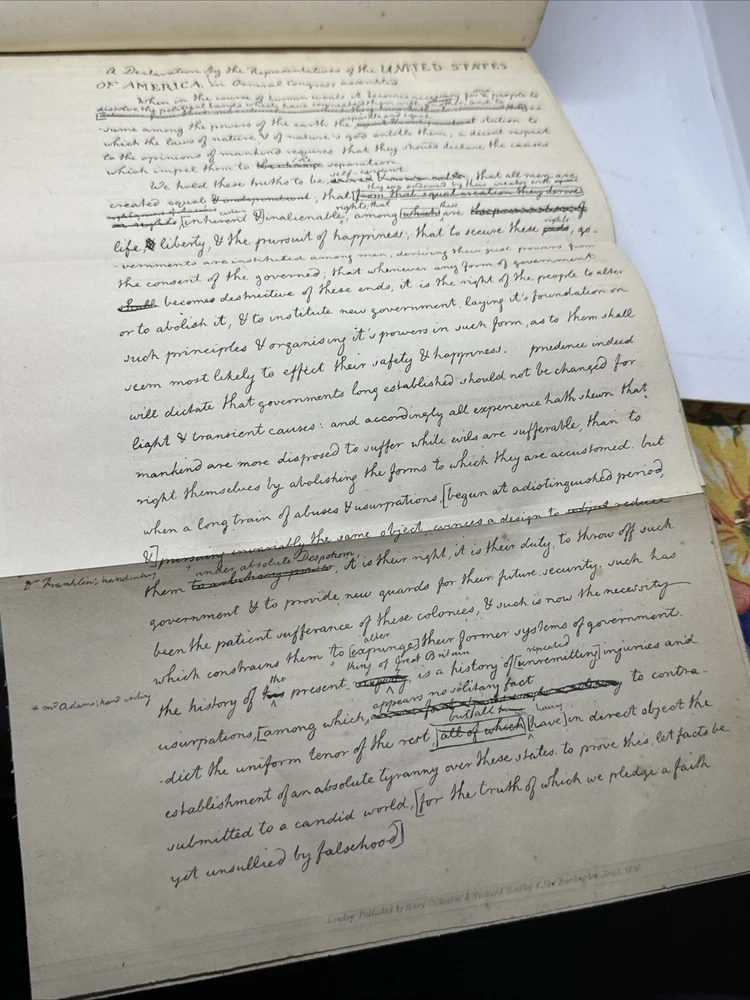 A Declaration by the Representatives of the UNITED STATES
OF AMERICA, in General Congress assembled.
When in the course of human events it becomes necessary for a people to
dissolve the political bands which have connected them with another, and to
separate and equal
same among the powers of the earth the station to
which the laws of nature & of nature's god entitle them, a decent respect
to the opinions of mankind requires that they should declare the causes
which impel them to the separation.
self-evident,
We hold these truths to be that all men are
they are endowed by their creator with
created equal & independant, that from that equal creation they derive
rights, that these
[inherent &] inalienable, among which are
rights
life, & liberty, & the pursuit of happiness; that to secure these ends, go-
vernments are instituted among men, deriving their just powers from
the consent of the governed; that whenever any form of government
shall becomes destructive of these ends, it is the right of the people to alter
or to abolish it, & to institute new government, laying it's foundation on
such principles & organising it's powers in such form, as to them shall
seem most likely to effect their safety & happiness. prudence indeed
will dictate that governments long established should not be changed for
light & transient causes: and accordingly all experience hath shewn that
mankind are more disposed to suffer while evils are sufferable, than to
right themselves by abolishing the forms to which they are accustomed. but
when a long train of abuses & usurpations, [begun at a distinguished period,
&] pursuing invariably the same object, evinces a design to subject reduce
Dr Franklin's handwriting * under absolute Despotism,
them to arbitrary power, it is their right, it is their duty, to throw off such
government & to provide new guards for their future security. such has
been the patient sufferance of these colonies, & such is now the necessity
which constrains them to [expunge] their former systems of government.
alter
the * king of Great Britain repeated
* Mr Adams' hand writing the history of his present is a history of [unremitting] injuries and
appears no solitary fact
usurpations, [among which, to contra-
but all having
-dict the uniform tenor of the rest, all of which [have] in direct object the
establishment of an absolute tyranny over these states. to prove this, let facts be
submitted to a candid world, [for the truth of which we pledge a faith
yet unsullied by falsehood]
London, Published by Henry Colburn & Richard Bentley